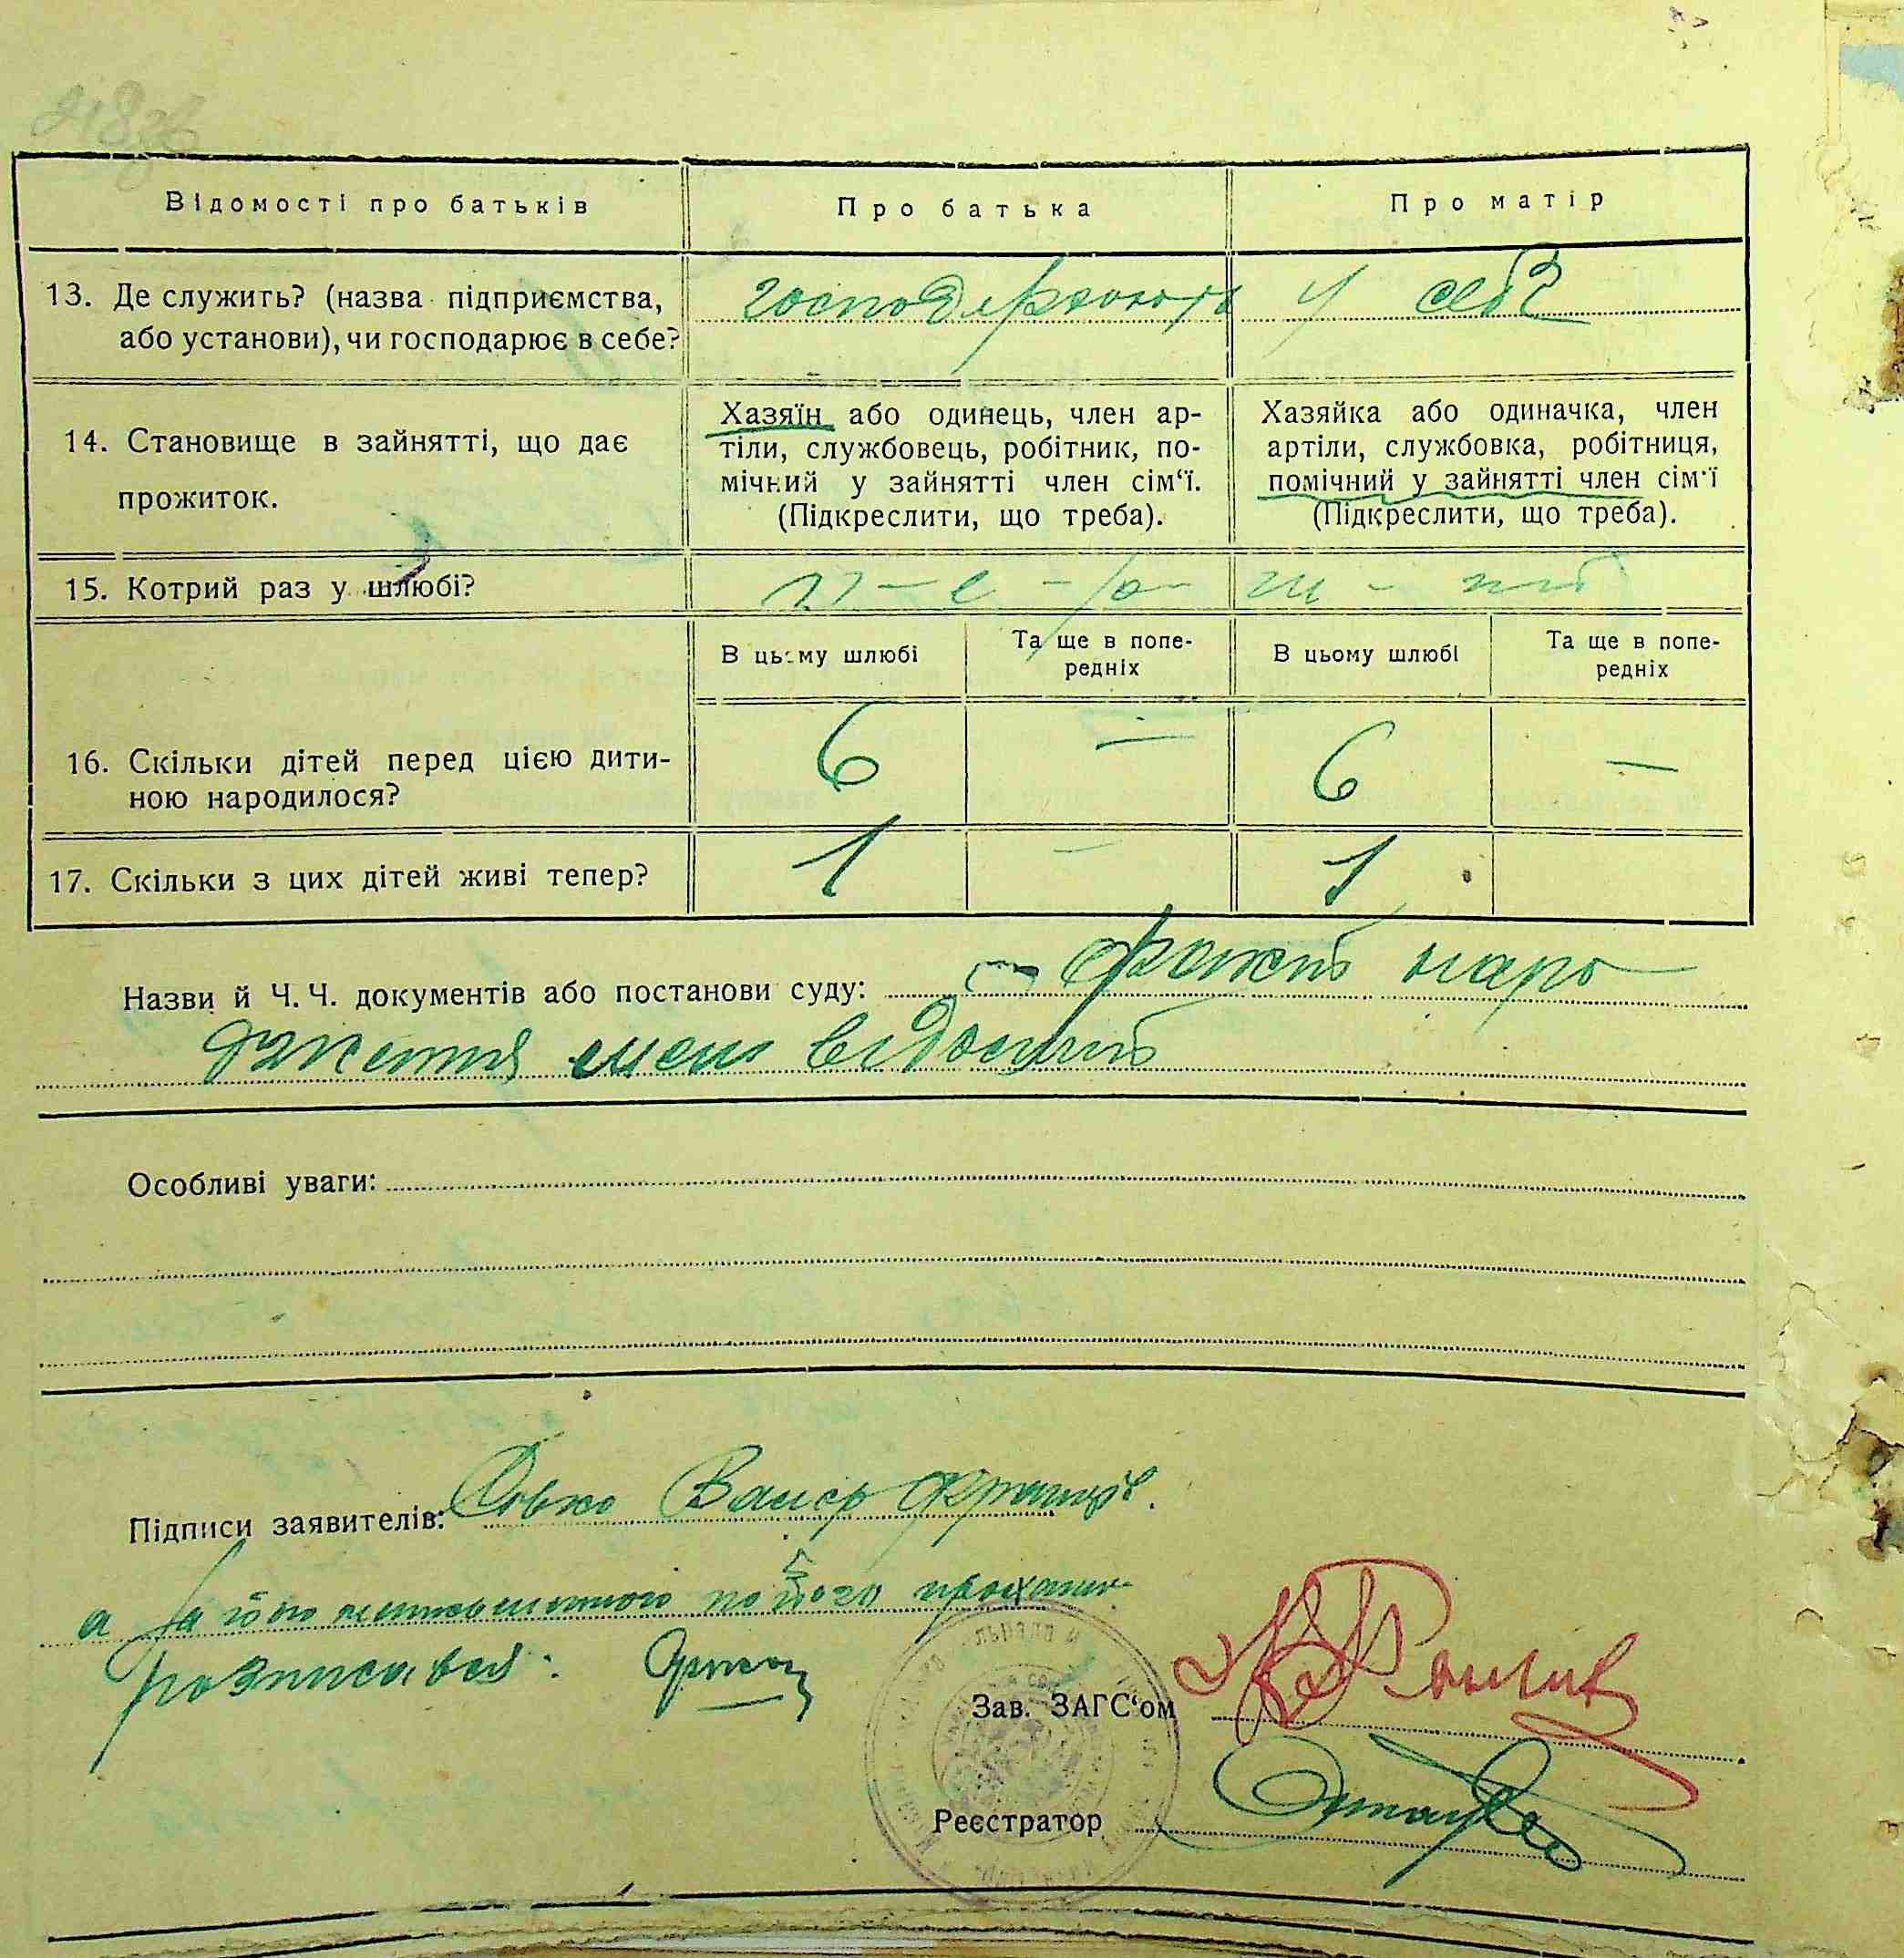 Відомості про батьків
Про батька
Про матір
13. Де служить? (назва підприємства,
або установи), чи господарює в себе?
господарюють у себе
14. Становище в зайнятті, що дає
прожиток.
Хазяїн або одинець, член ар-
тіли, службовець, робітник, по-
мічний у зайнятті член сім‘ї.
(Підкреслити, що треба).
Хазяйка або одиначка, член
артіли, службовка, робітниця,
помічний у зайнятті член сім‘ї
(Підкреслити, що треба).
15. Котрий раз у шлюбі?
В цьому шлюбі
Та ще в попе-
редніх
В цьому шлюбі
Та ще в попе-
редніх
16. Скільки дітей перед цією дити-
ною народилося?
6 — 6 —
17. Скільки з цих дітей живі тепер?
1 — 1
Назви й Ч. Ч. документів або постанови суду: факт наро
дження мені відомий
Особливі уваги:
Підписи заявителів:
а за його неписьменного по його проханню
розписався:
Зав. ЗАГС‘ом
Реєстратор